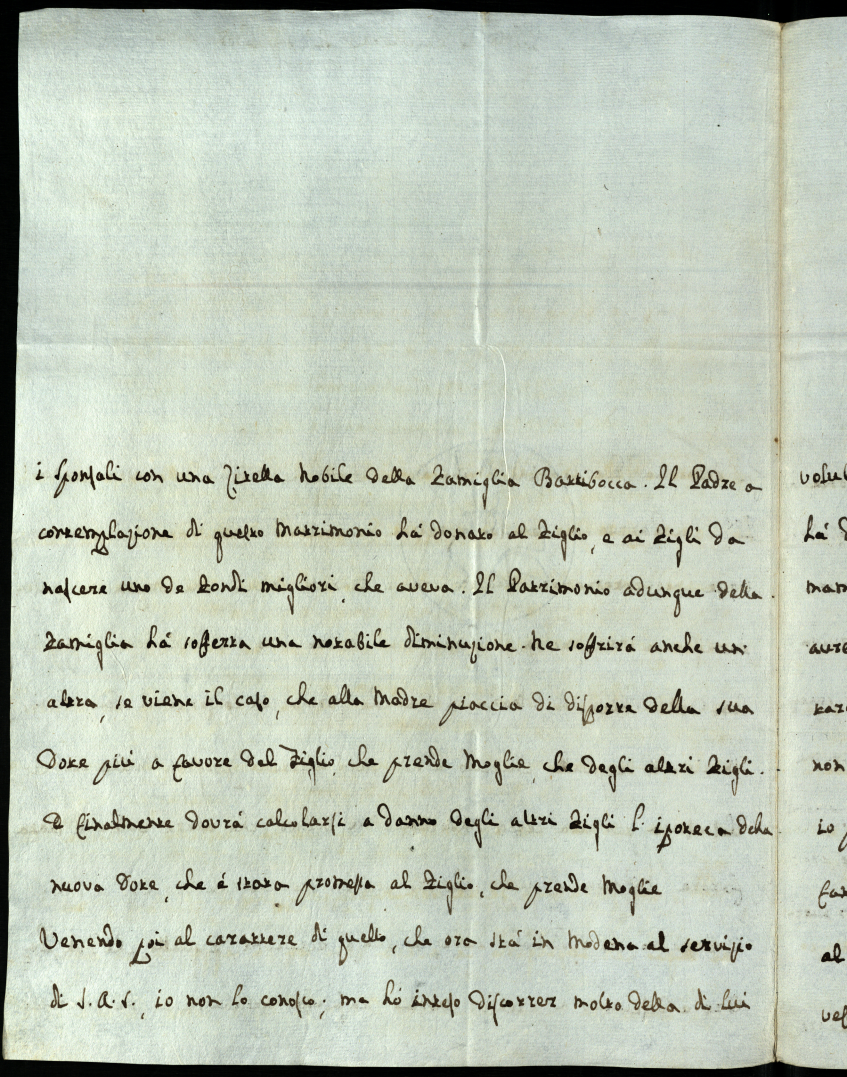 i sponsali con una Zitella Nobile della Famiglia Barribocca. Il Padre a
contemplazione di questo Matrimonio há donato al Figlio, e ai Figli da
nascere uno de Fondi migliori, che aveva. Il Patrimonio adunque della
Famiglia há sofferta una notabile diminuzione. Ne soffrirá anche un'
altra, se viene il caso, che alla Madre piaccia di disporre della sua
Dote piú a favore del Figlio, che prende Moglie, che degli altri Figli.
E finalmente dovrá calcolarsi a danno degli altri Figli l'ipoteca della
nuova Dote, che é stata promessa al Figlio, che prende Moglie
Venendo poi al carattere di quello, che ora stá in Modena al servizio
di S.A.S., io non lo conosco; ma hó inteso discorrer molto della di lui
há
non
io
al